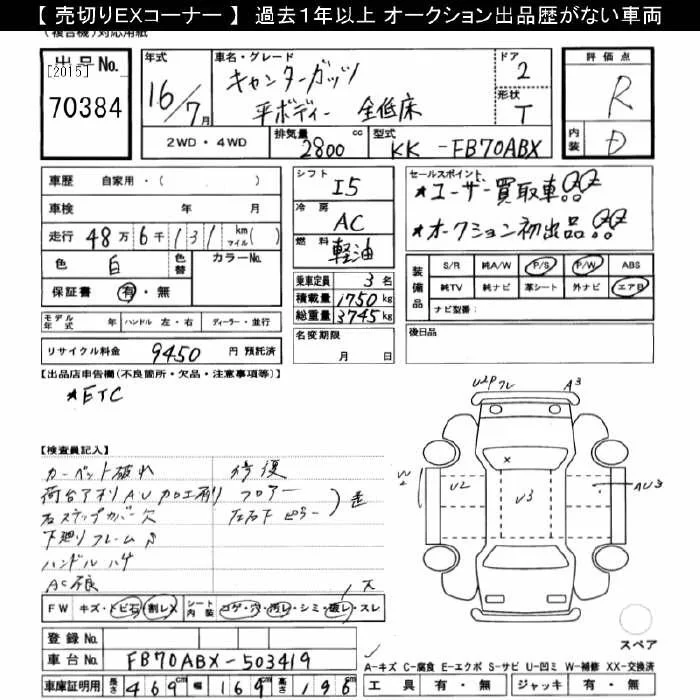 【 売切りEXコーナー 】 過去1年以上 オークション出品歴がない車両
出品No.
[2015]
70384
年式
16/7月
車名・グレード
キャンターガッツ
平ボディー 全低床
ドア
2
形状
T
評価点
R
内装
D
2WD・4WD
排気量
2800 cc
型式
KK-FB70ABX
車歴 自家用・( )
車検 年 月
走行 48万6千131 km マイル( )
色 白 色替 カラーNo.
保証書 有・無
モデル年式 年 ハンドル 左・右 ディーラー・並行
リサイクル料金 9450 円 預託済
シフト
I5
冷房
AC
燃料
軽油
乗車定員 3名
積載量 1750kg
総重量 3745kg
名変期限
月 日
セールスポイント
★ユーザー買取車!!
★オークション初出品!!
装備品
S/R 純A/W P/S P/W ABS
純TV 純ナビ 革シート 外ナビ エアB
ナビ型番:
後日品
【出品店申告欄(不良箇所・欠品・注意事項等)】
★ETC
【検査員記入】
カーペット破れ
荷台アオリ AU 加工有り
右ステップカバー欠
下廻りフレームS
ハンドルハゲ
AC不良
修復
フロアー
左右下ピラー
歪
FW キズ・トビ石・割レX
シート内装 コゲ・穴・汚レ・シミ・破レ・スレ
登録No.
車台No. FB70ABX-503419
車庫証明用 長さ 469cm 幅 169cm 高さ 196cm
U2P フレ
A3
W2
U2
U3
AU3
スペア
A-キズ C-腐食 E-エクボ S-サビ U-凹ミ W-補修 XX-交換済
工具 有・無 ジャッキ 有・無